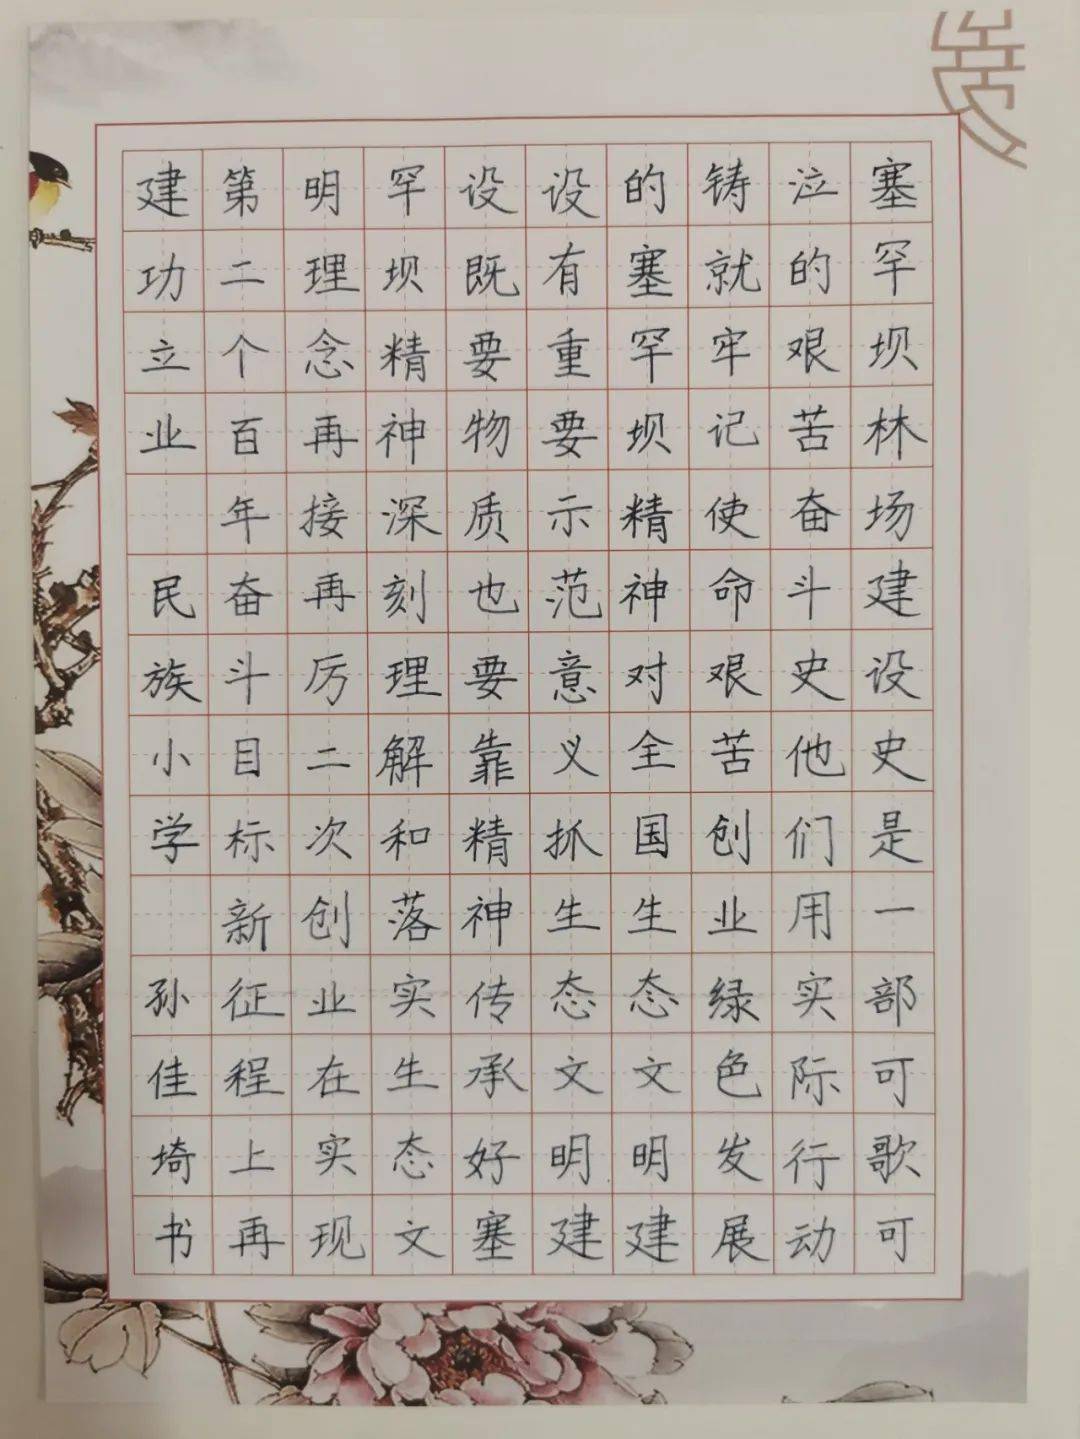 塞罕坝林场建设史是一部可歌可
泣的艰苦奋斗史他们用实际行动
铸就牢记使命艰苦创业绿色发展
的塞罕坝精神对全国生态文明建
设有重要示范意义抓生态文明建
设既要物质也要靠精神传承好塞
罕坝精神深刻理解和落实生态文
明理念再接再厉二次创业在实现
第二个百年奋斗目标新征程上再
建功立业 民族小学 孙佳埼书